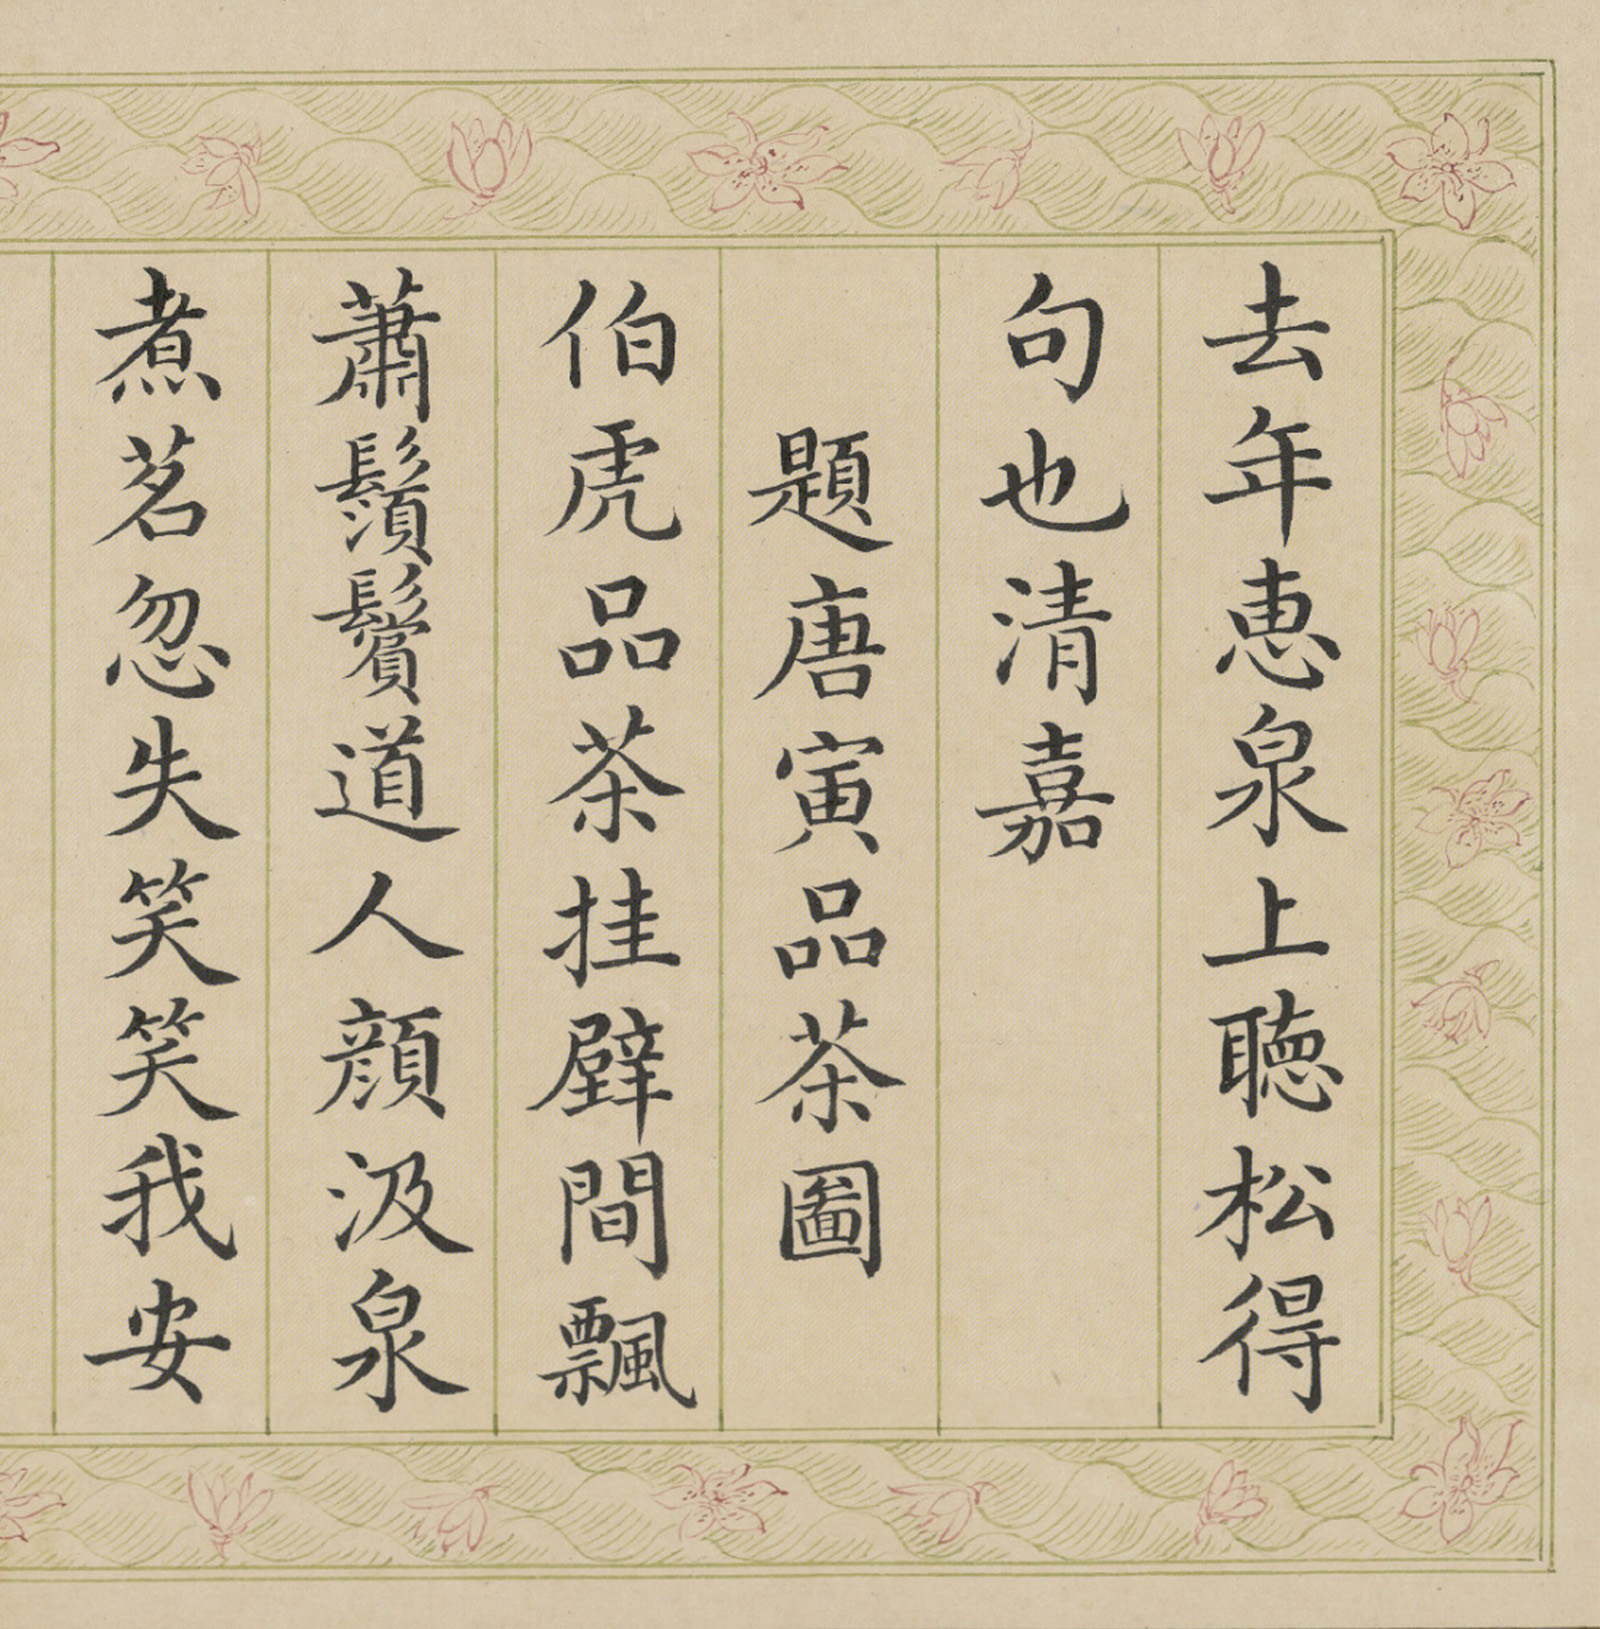 去年惠泉上聴松得
句也清嘉
題唐寅品茶圖
伯虎品茶挂壁間飄
蕭鬚鬢道人顔汲泉
煮茗忽失笑笑我安